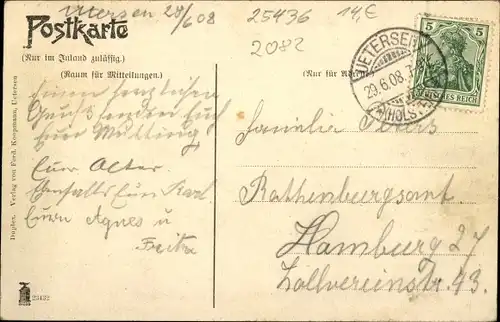 Uetersen 28/6 08
25436 14,€
2082
Postkarte
(Nur im Inland zulässig.)
(Raum für Mitteilungen.)
(Nur für Adresse)
5
5
DEUTSCHES REICH
UETERSEN
29.6.08.
(HOLST.)
Einen herzlichen
Gruß senden Euch
Eure Mutting
Euer Alter
Ebenfalls Euer Karl
Eure Agnes u
Fritz
Familie
Rothenburgsamt
Hamburg 27
Zollvereinstr. 43.
Duplex. Verlag von Ferd. Koopmann, Uetersen
23432